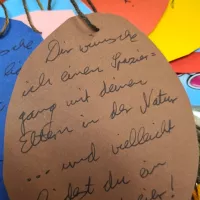 Dir wünsche
ich einen Spazier=
gang mit deinen
Eltern in der Natur
... und vielleicht
findest du ein